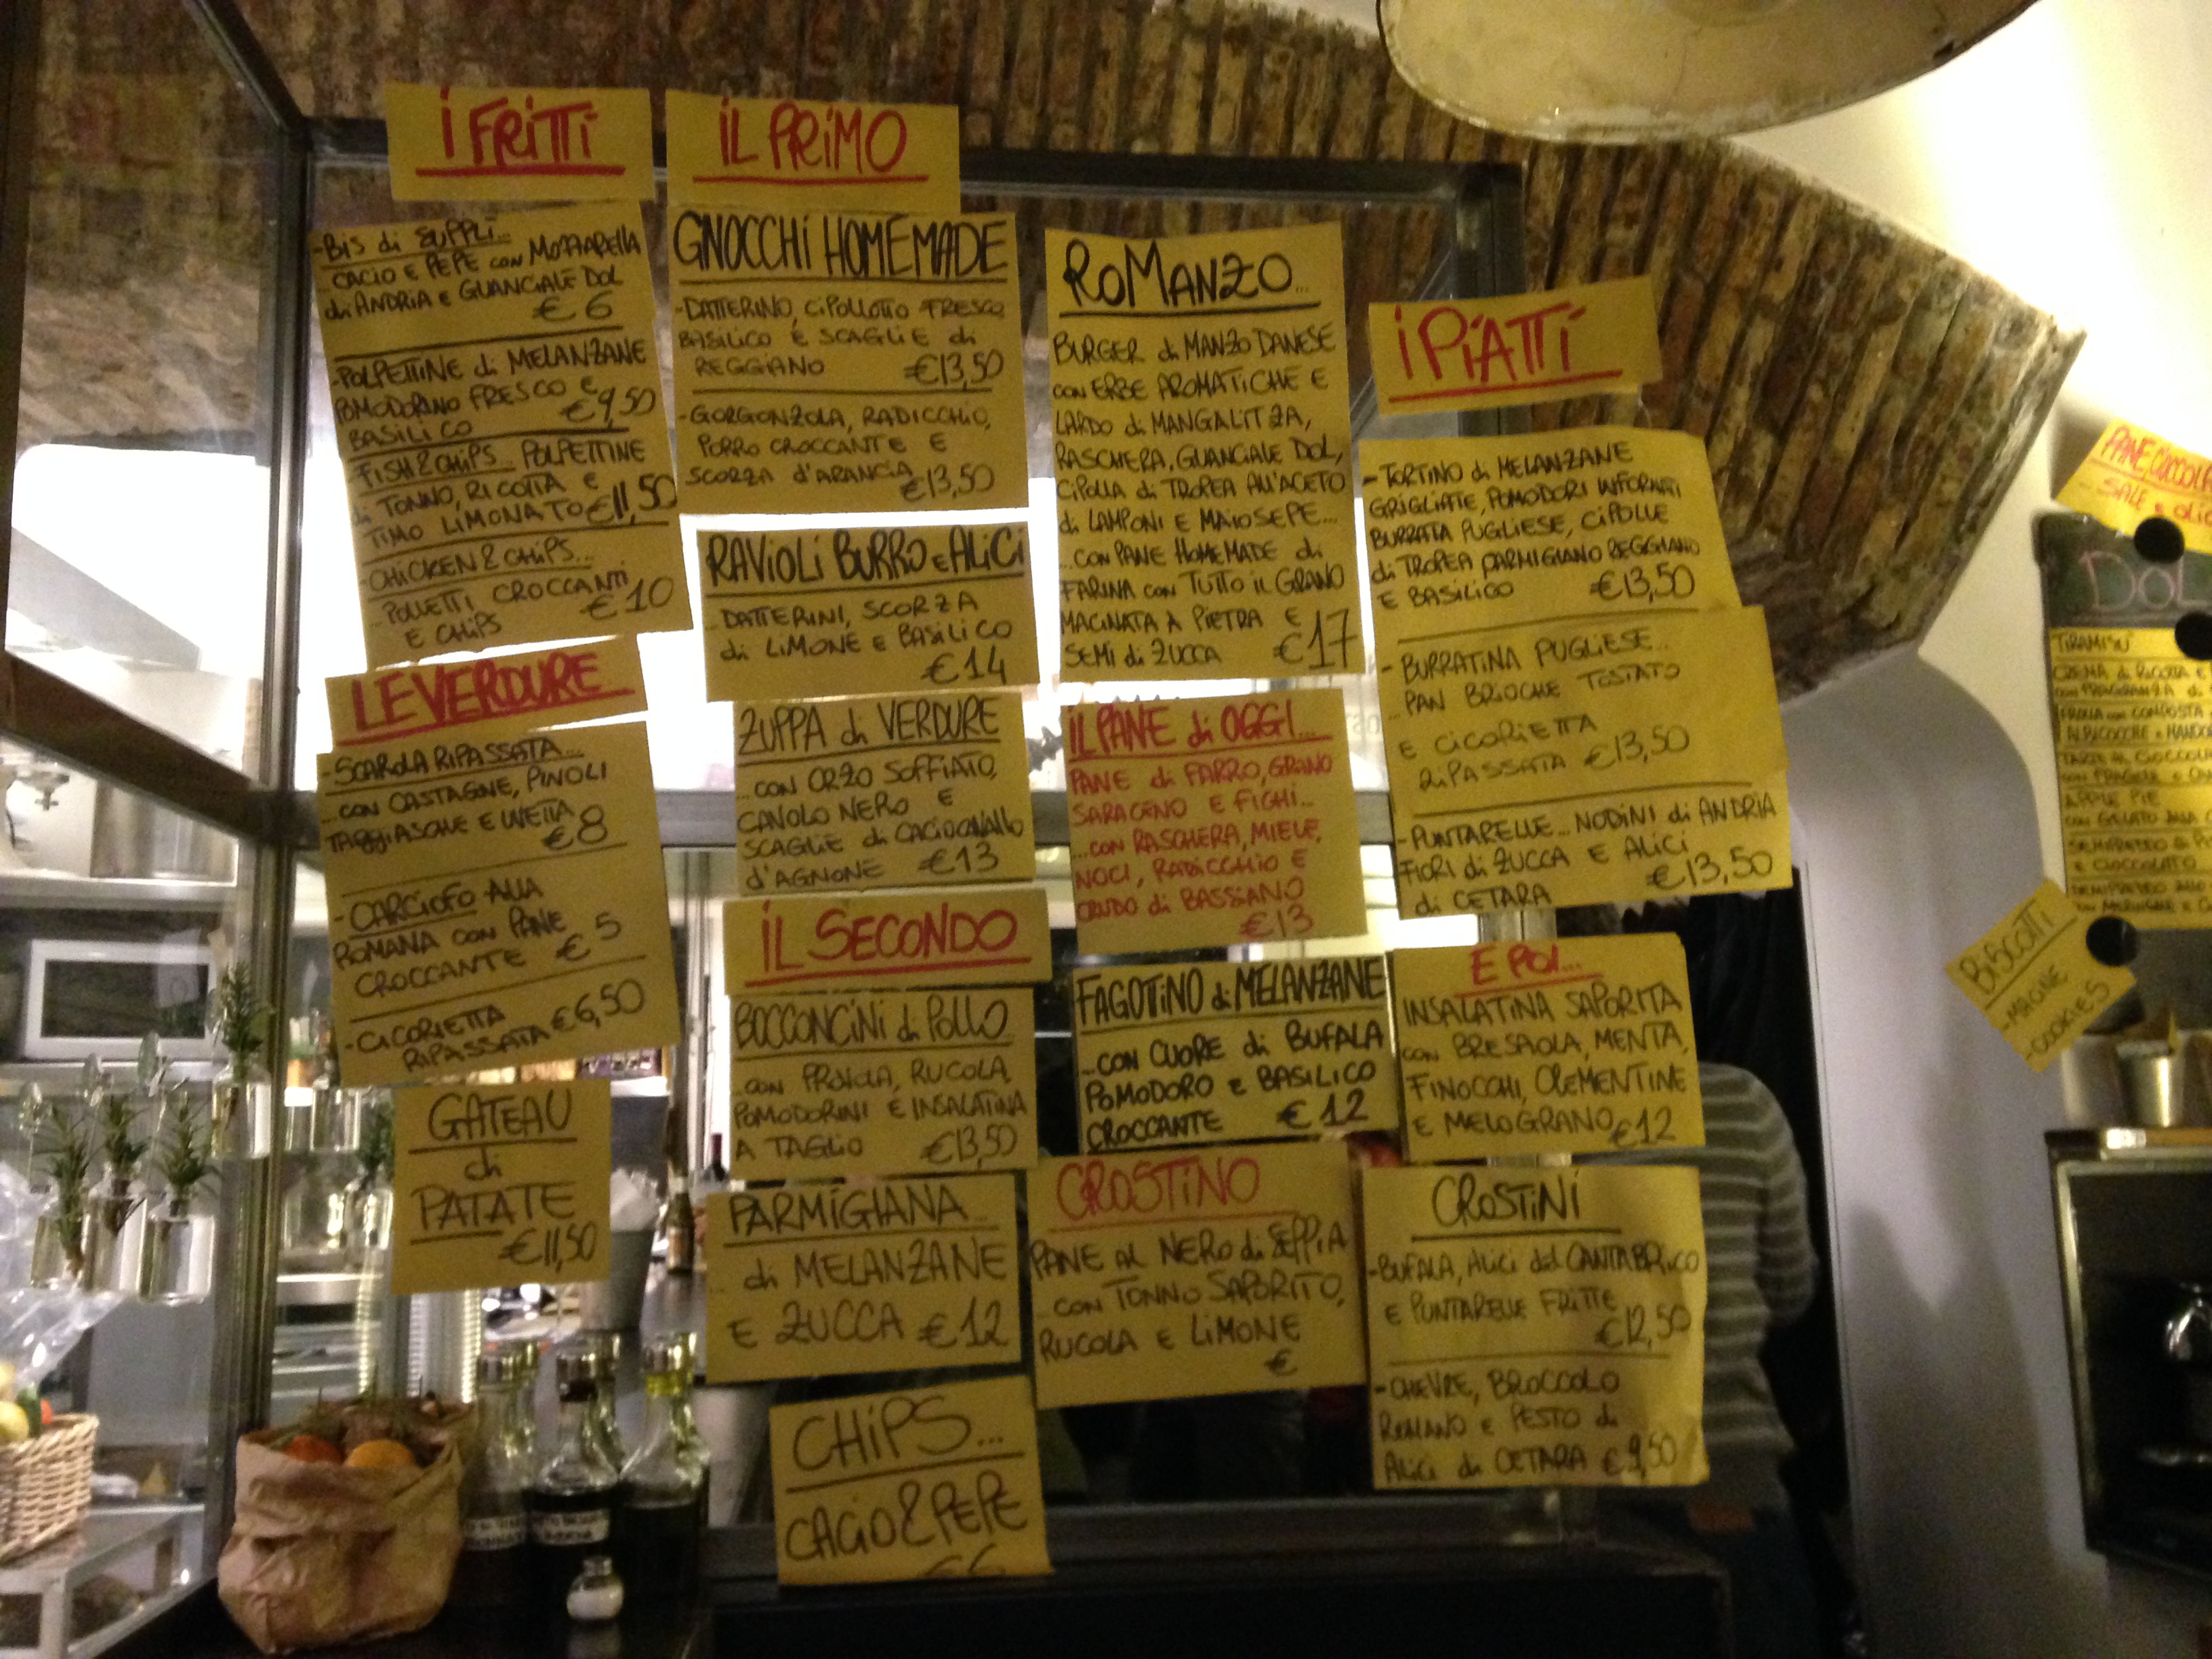 I FRITTI
- BIS di SUPPLÌ...
...CACIO E PEPE con MOZZARELLA
di ANDRIA E GUANCIALE DOL
€ 6
- POLPETTINE di MELANZANE
POMODORINO FRESCO E
BASILICO €9,50
FISH & CHIPS... POLPETTINE
di TONNO, RICOTTA E
TIMO LIMONATO €11,50
- CHICKEN & CHIPS...
...POLLETTI CROCCANTI
E CHIPS €10
LE VERDURE
- SCAROLA RIPASSATA...
...CON CASTAGNE, PINOLI
TAGGIASCHE E UVETTA
€8
- CARCIOFO ALLA
ROMANA CON PANE
CROCCANTE €5
- CICORIETTA
RIPASSATA €6,50
GATEAU
di
PATATE
€11,50
IL PRIMO
GNOCCHI HOMEMADE
- DATTERINO, CIPOLLOTTO FRESCO,
BASILICO E SCAGLIE di
REGGIANO €13,50
- GORGONZOLA, RADICCHIO,
PORRO CROCCANTE E
SCORZA d'ARANCIA €13,50
RAVIOLI BURRO E ALICI
...DATTERINI, SCORZA
di LIMONE E BASILICO
€14
ZUPPA di VERDURE
...CON ORZO SOFFIATO,
CAVOLO NERO E
SCAGLIE di CACIOCAVALLO
d'AGNONE €13
IL SECONDO
BOCCONCINI di POLLO
...con PROVOLA, RUCOLA,
POMODORINI E INSALATINA
A TAGLIO €13,50
PARMIGIANA...
...di MELANZANE
E ZUCCA €12
CHIPS...
CACIO & PEPE
€6
ROMANZO...
BURGER di MANZO DANESE
con ERBE AROMATICHE E
LARDO di MANGALITZA,
RASCHERA, GUANCIALE DOL,
CIPOLLA di TROPEA ALL'ACETO
di LAMPONI E MAIOSEPE...
...CON PANE HOMEMADE di
FARINA con TUTTO il GRANO
MACINATA A PIETRA E
SEMI di ZUCCA €17
IL PANE di OGGI...
PANE di FARRO, GRANO
SARACENO E FICHI...
...CON RASCHERA, MIELE,
NOCI, RADICCHIO E
CRUDO di BASSIANO
€13
FAGOTTINO di MELANZANE
...CON CUORE di BUFALA
POMODORO E BASILICO
CROCCANTE €12
CROSTINO
PANE AL NERO di SEPPIA
...CON TONNO SAPORITO,
RUCOLA E LIMONE
€
I PIATTI
- TORTINO di MELANZANE
GRIGLIATE, POMODORI INFORNATI
BURRATA PUGLIESE, CIPOLLE
di TROPEA PARMIGIANO REGGIANO
E BASILICO €13,50
- BURRATINA PUGLIESE...
...PAN BRIOCHE TOSTATO
E CICORIETTA
RIPASSATA €13,50
- PUNTARELLE... NODINI di ANDRIA
FIORI di ZUCCA E ALICI
di CETARA €13,50
E POI...
INSALATINA SAPORITA
con BRESAOLA, MENTA,
FINOCCHI, CLEMENTINE
E MELOGRANO €12
CROSTINI
- BUFALA, ALICI del CANTABRICO
E PUNTARELLE FRITTE
€12,50
- CHEVRE, BROCCOLO
ROMANO E PESTO di
ALICI di CETARA €9,50
SALE E OLIO
DOL
TIRAMISÙ
CREMA di RICOTTA E
APPLE PIE
BISCOTTI
- MACINE
- COOKIES